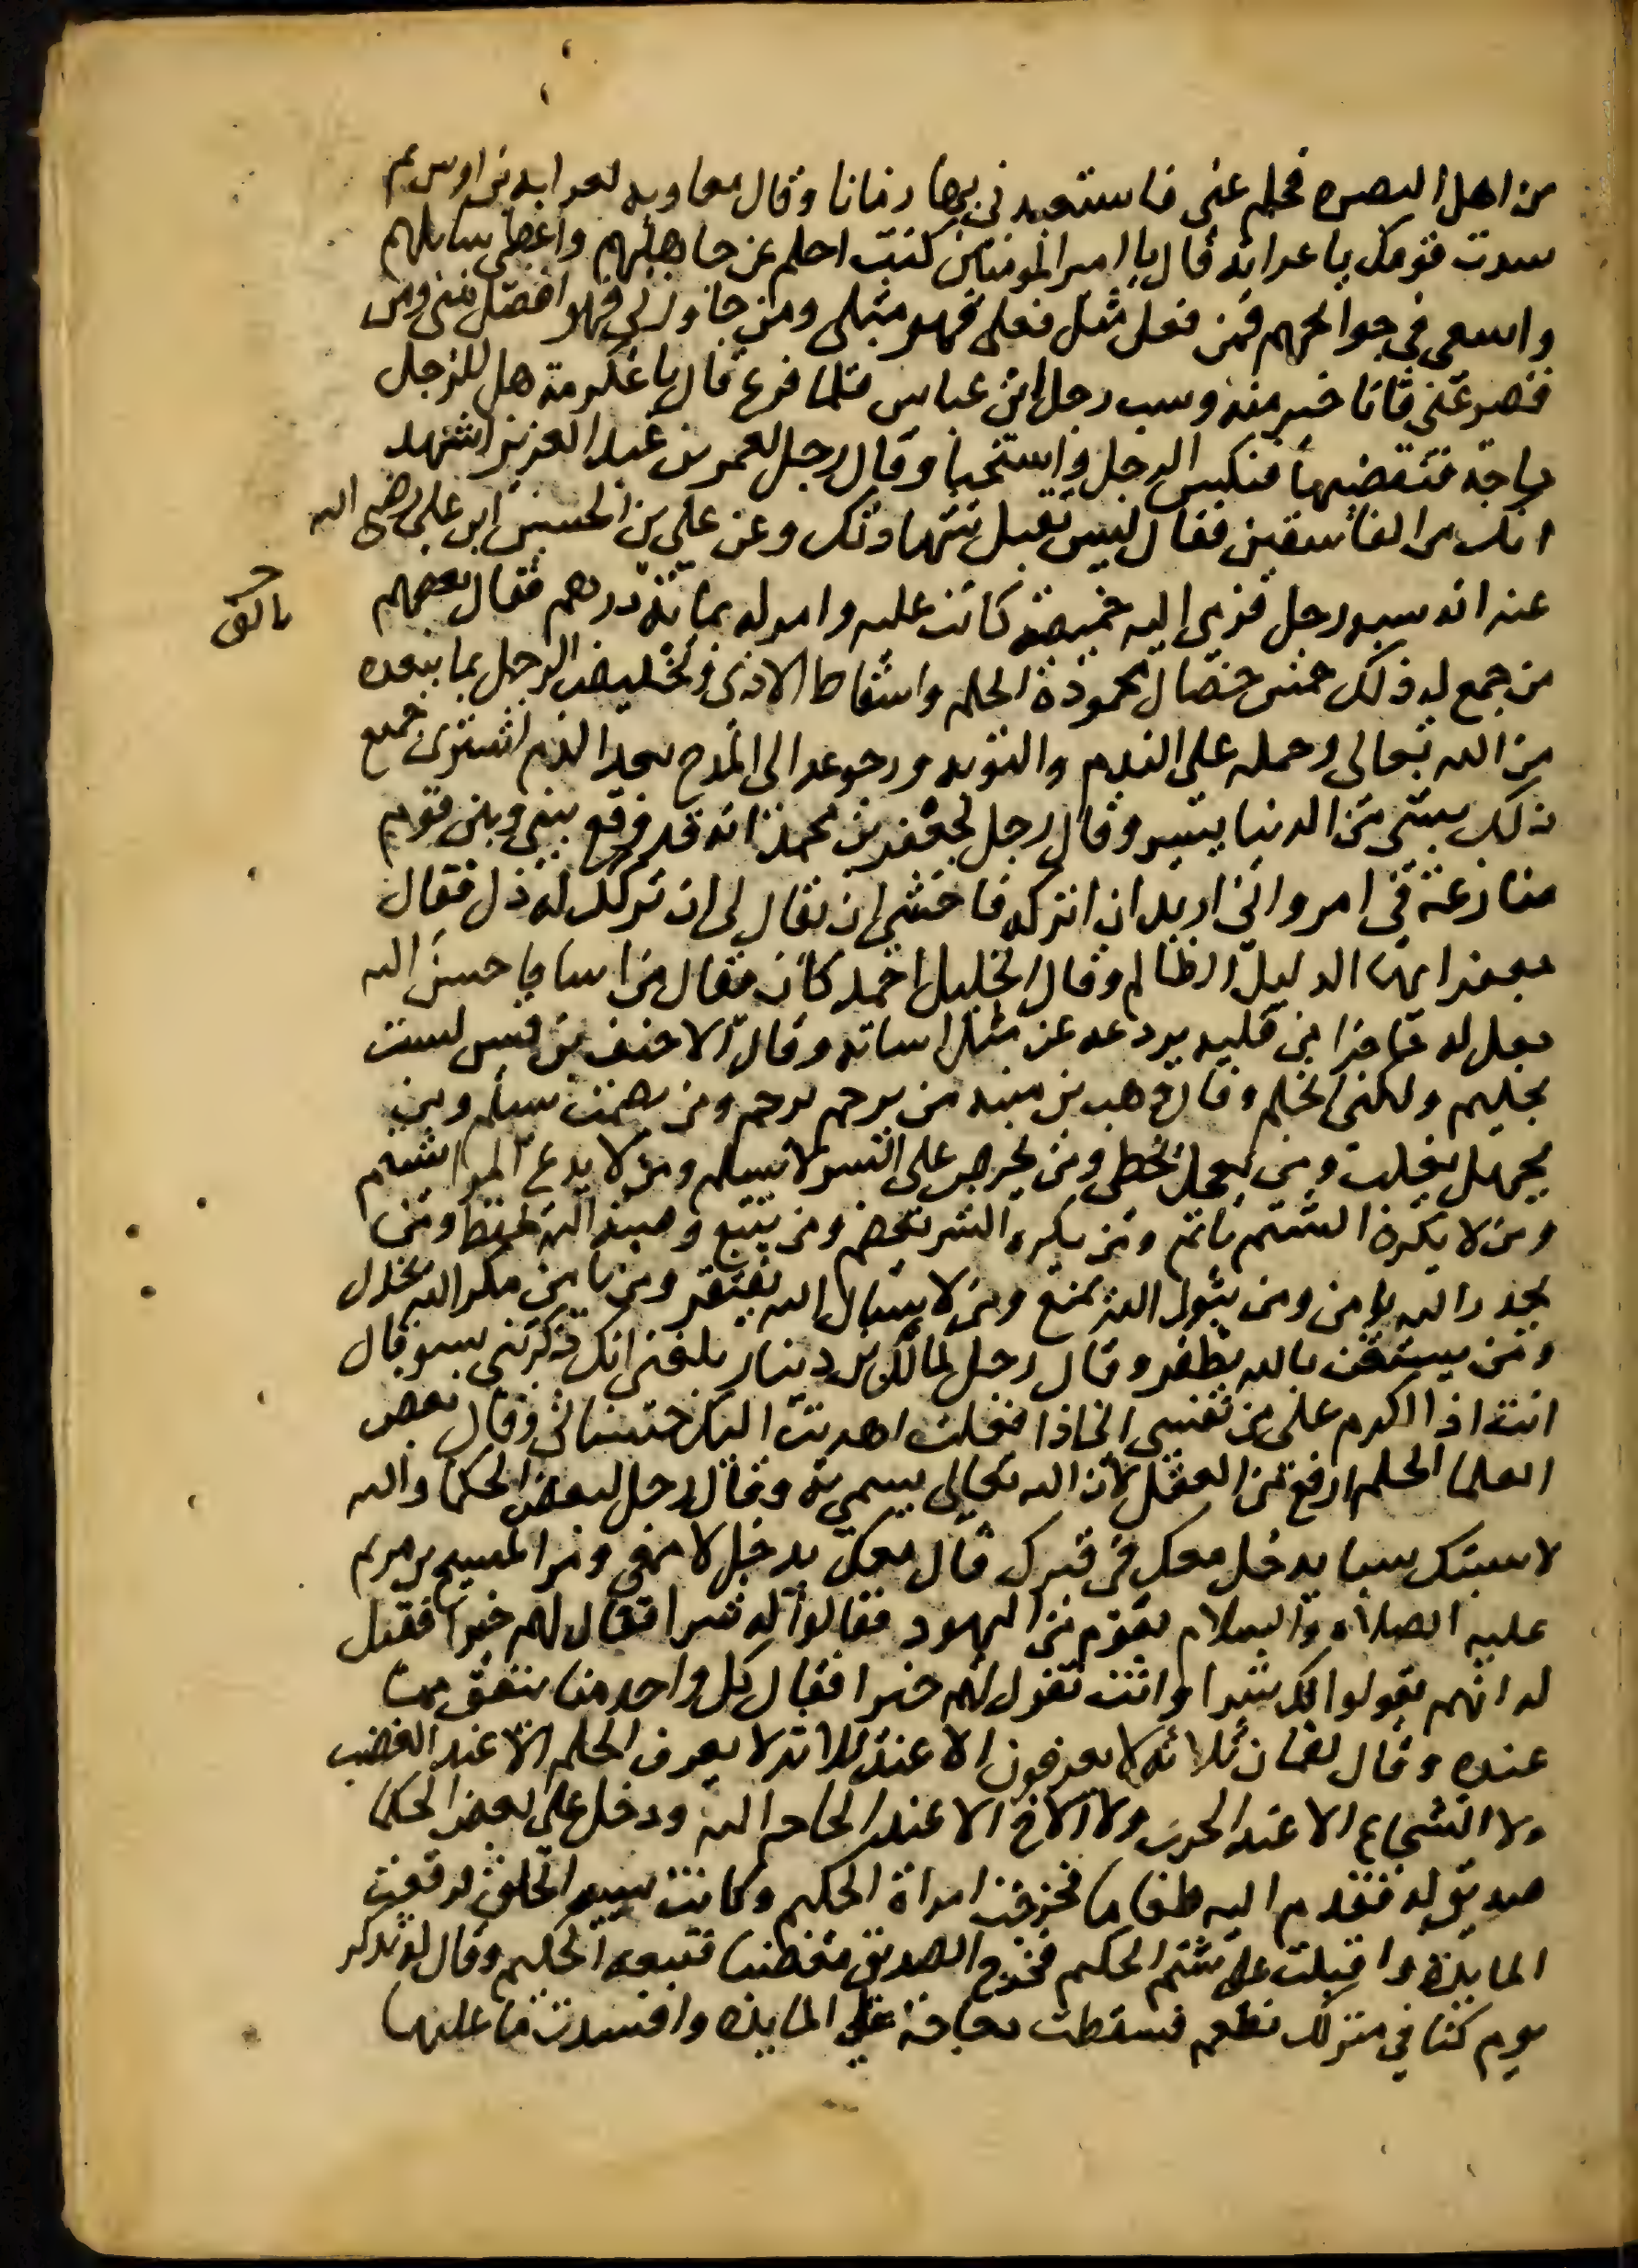 من اهل البصره فحلم عني فاستعبدني بها زمانا وقال معاويه لعرابه بن اوس بم
سدت قومك يا عرابه قال يا امير المومنين كنت احلم عن جاهلهم واعطي سايلهم
واسعي في حوايجهم فمن فعل مثل فعلي فهو مثلي ومن جاوزني فهو افضل مني ومن
قصر عني فانا خير منه وسب رجل ابن عباس فلما فرغ قال يا عكرمة هل للرجل
حاجة فنقضيها فنكس الرجل واستحيا وقال رجل لعمر بن عبد العزيز اشهد
انك من الفاسقين فقال ليس تقبل شهادتك وعن علي بن الحسين ابن علي رضي الله
عنه انه سبه رجل فرمي اليه خميصة كانت عليه وامر له بمائة درهم فقال بعضهم
من جمع له ذلك خمس خصال محمودة الحلم واسقاط الاذي وتخليص الرجل بما يبعده
من الله تعالي وحمله علي الندم والتوبه ورجوعه الي المدح بعد الذم اشتري جميع
ذلك بشي من الدنيا يسير وقال رجل لجعفر بن محمد انه قد وقع بيني وبين قوم
منازعة في امر واني اريد ان اتركه فاخشي ان يقال لي ان تركك له ذل فقال
جعفر انما الذليل الظالم وقال الخليل احمد كان يقال من اسا فاحسن اليه
جعل له حاجزا من قلبه يردعه عن مثل اساته وقال الاحنف بن قيس لست
بحليم ولكني اتحلم وقال وهب بن منبه من يرحم يرحم ومن يصمت يسلم ومن
يجهل يغلب ومن يعجل يخطي ومن يحرص علي الشر لا يسلم ومن لا يدع المرا يشتم
ومن لا يكره الشتم ياثم ومن يكره الشر يعصم ومن يتبع وصية الله يحفظ ومن
يحذر الله يامن ومن يتول الله يمنع ومن لا يسال الله يفتقر ومن يامن مكر الله يخذل
ومن يستعن بالله يظفر وقال رجل لمالك بن دينار بلغني انك ذكرتني بسو قال
انت اذا اكرم علي من نفسي اني اذا فعلت اهديت اليك حسناتي وقال بعض
العلما الحلم ارفع من العقل لان الله تعالي يسمي به وقال رجل لبعض الحكما والله
لاسبنك سبا يدخل معك في قبرك قال معك يدخل لا معي ومر المسيح بن مريم
عليه الصلاه والسلام بقوم من اليهود فقالوا له شرا فقال لهم خيرا فقيل
له انهم يقولوا لك شرا وانت تقول لهم خيرا فقال كل واحد منا ينفق مما
عنده وقال لقمان ثلاثه لا يعرفون الا عند ثلاثه لا يعرف الحليم الا عند الغضب
ولا الشجاع الا عند الحرب ولا الاخ الا عند الحاجه اليه ودخل علي بعض الحكما
صديق له فقدم اليه طعاما فخرجت امراة الحكيم وكانت سيية الخلق فرفعت
المايدة واقبلت علي شتم الحكيم فخرج الصديق مغضبا فتبعه الحكيم وقال له تذكر
يوم كنا في منزلك نطعم فسقطت دجاجة علي المايدة وافسدت ما عليها